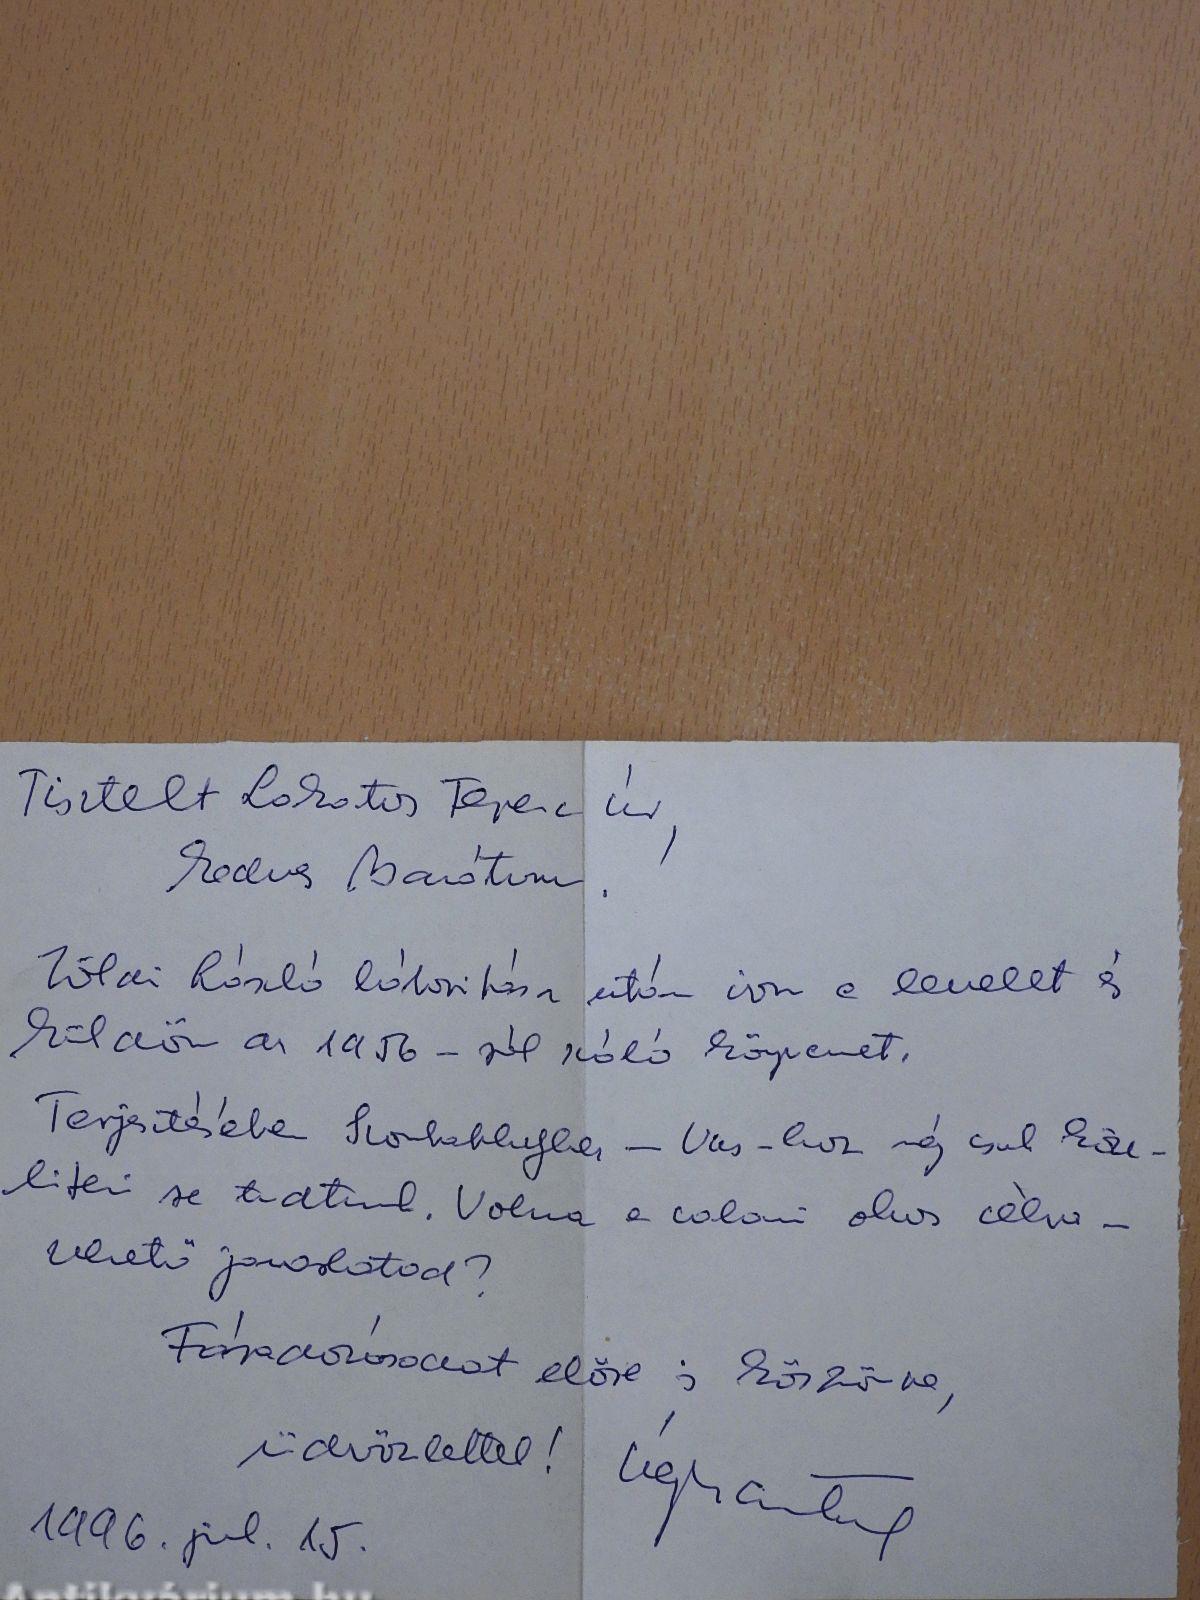 Tisztelt Lakatos Ferenc úr,
Kedves Barátom.
Zólai László bátorítása után írom e levelet és
küldöm az 1956-ról szóló könyvemet.
Terjesztésében Szombathelyen – Vas-ban még csak köze-
líteni se tudtunk. Volna-e valami okos célra-
vezető javaslatod?
Fáradozásodat előre is köszönve,
üdvözlettel!
1996. júl. 15.
Antikvárium.hu